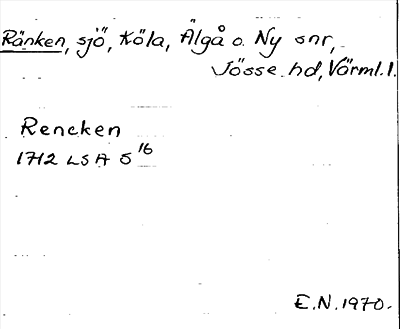 Ränken, sjö, Köla, Älgå o. Ny snr,
Jösse hd, Värml. l.
Rencken
1712 LSA S 16
E.N. 1970.